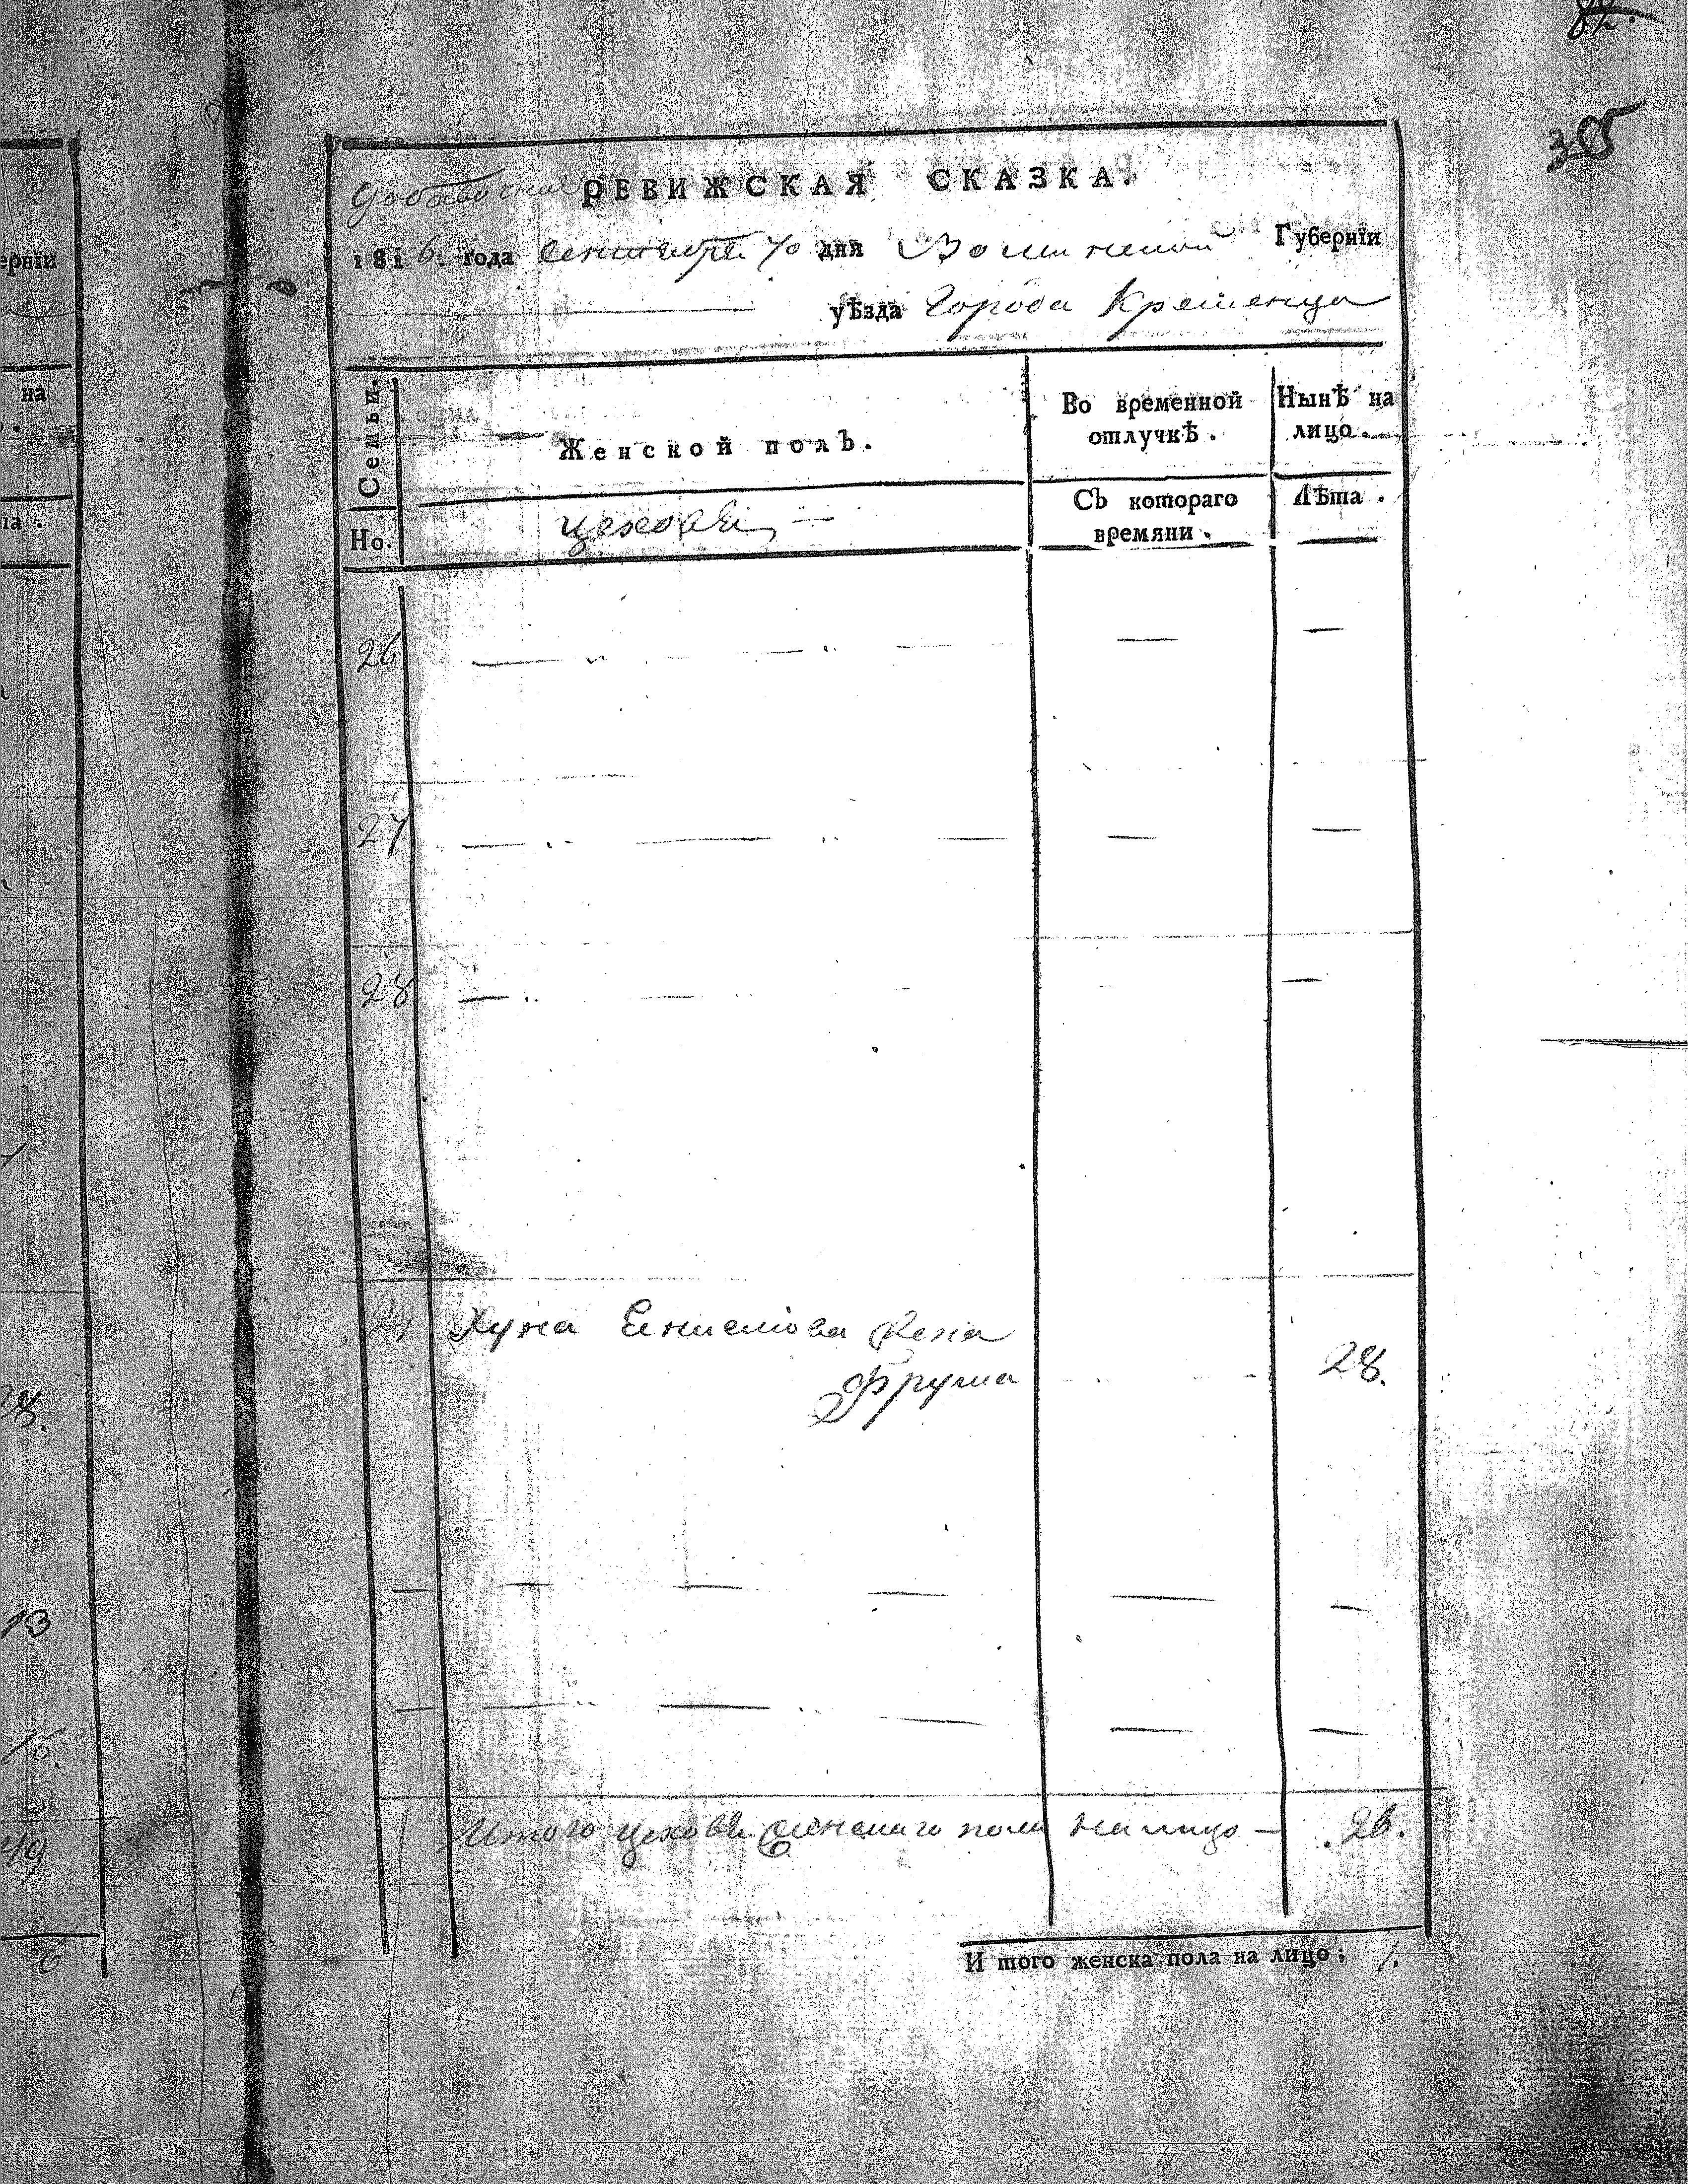 82.
305
Добавочная РЕВИЖСКАЯ СКАЗКА.
1816. года сентября 10 дня Волынской Губернїи
уѣзда Города Кременца
Семьи.
Женской полъ.
Во временной отлучкѣ.
Нынѣ на лицо.
Но.
цеховы
Съ котораго времяни.
Лѣта.
26
27
28
29 Хуна жена
Фрума 28.
Итого цеховы женскаго пола на лицо — 26.
И того женска пола на лицо; 1.
ернїи
на
ла.
28.
13
16.
49
6